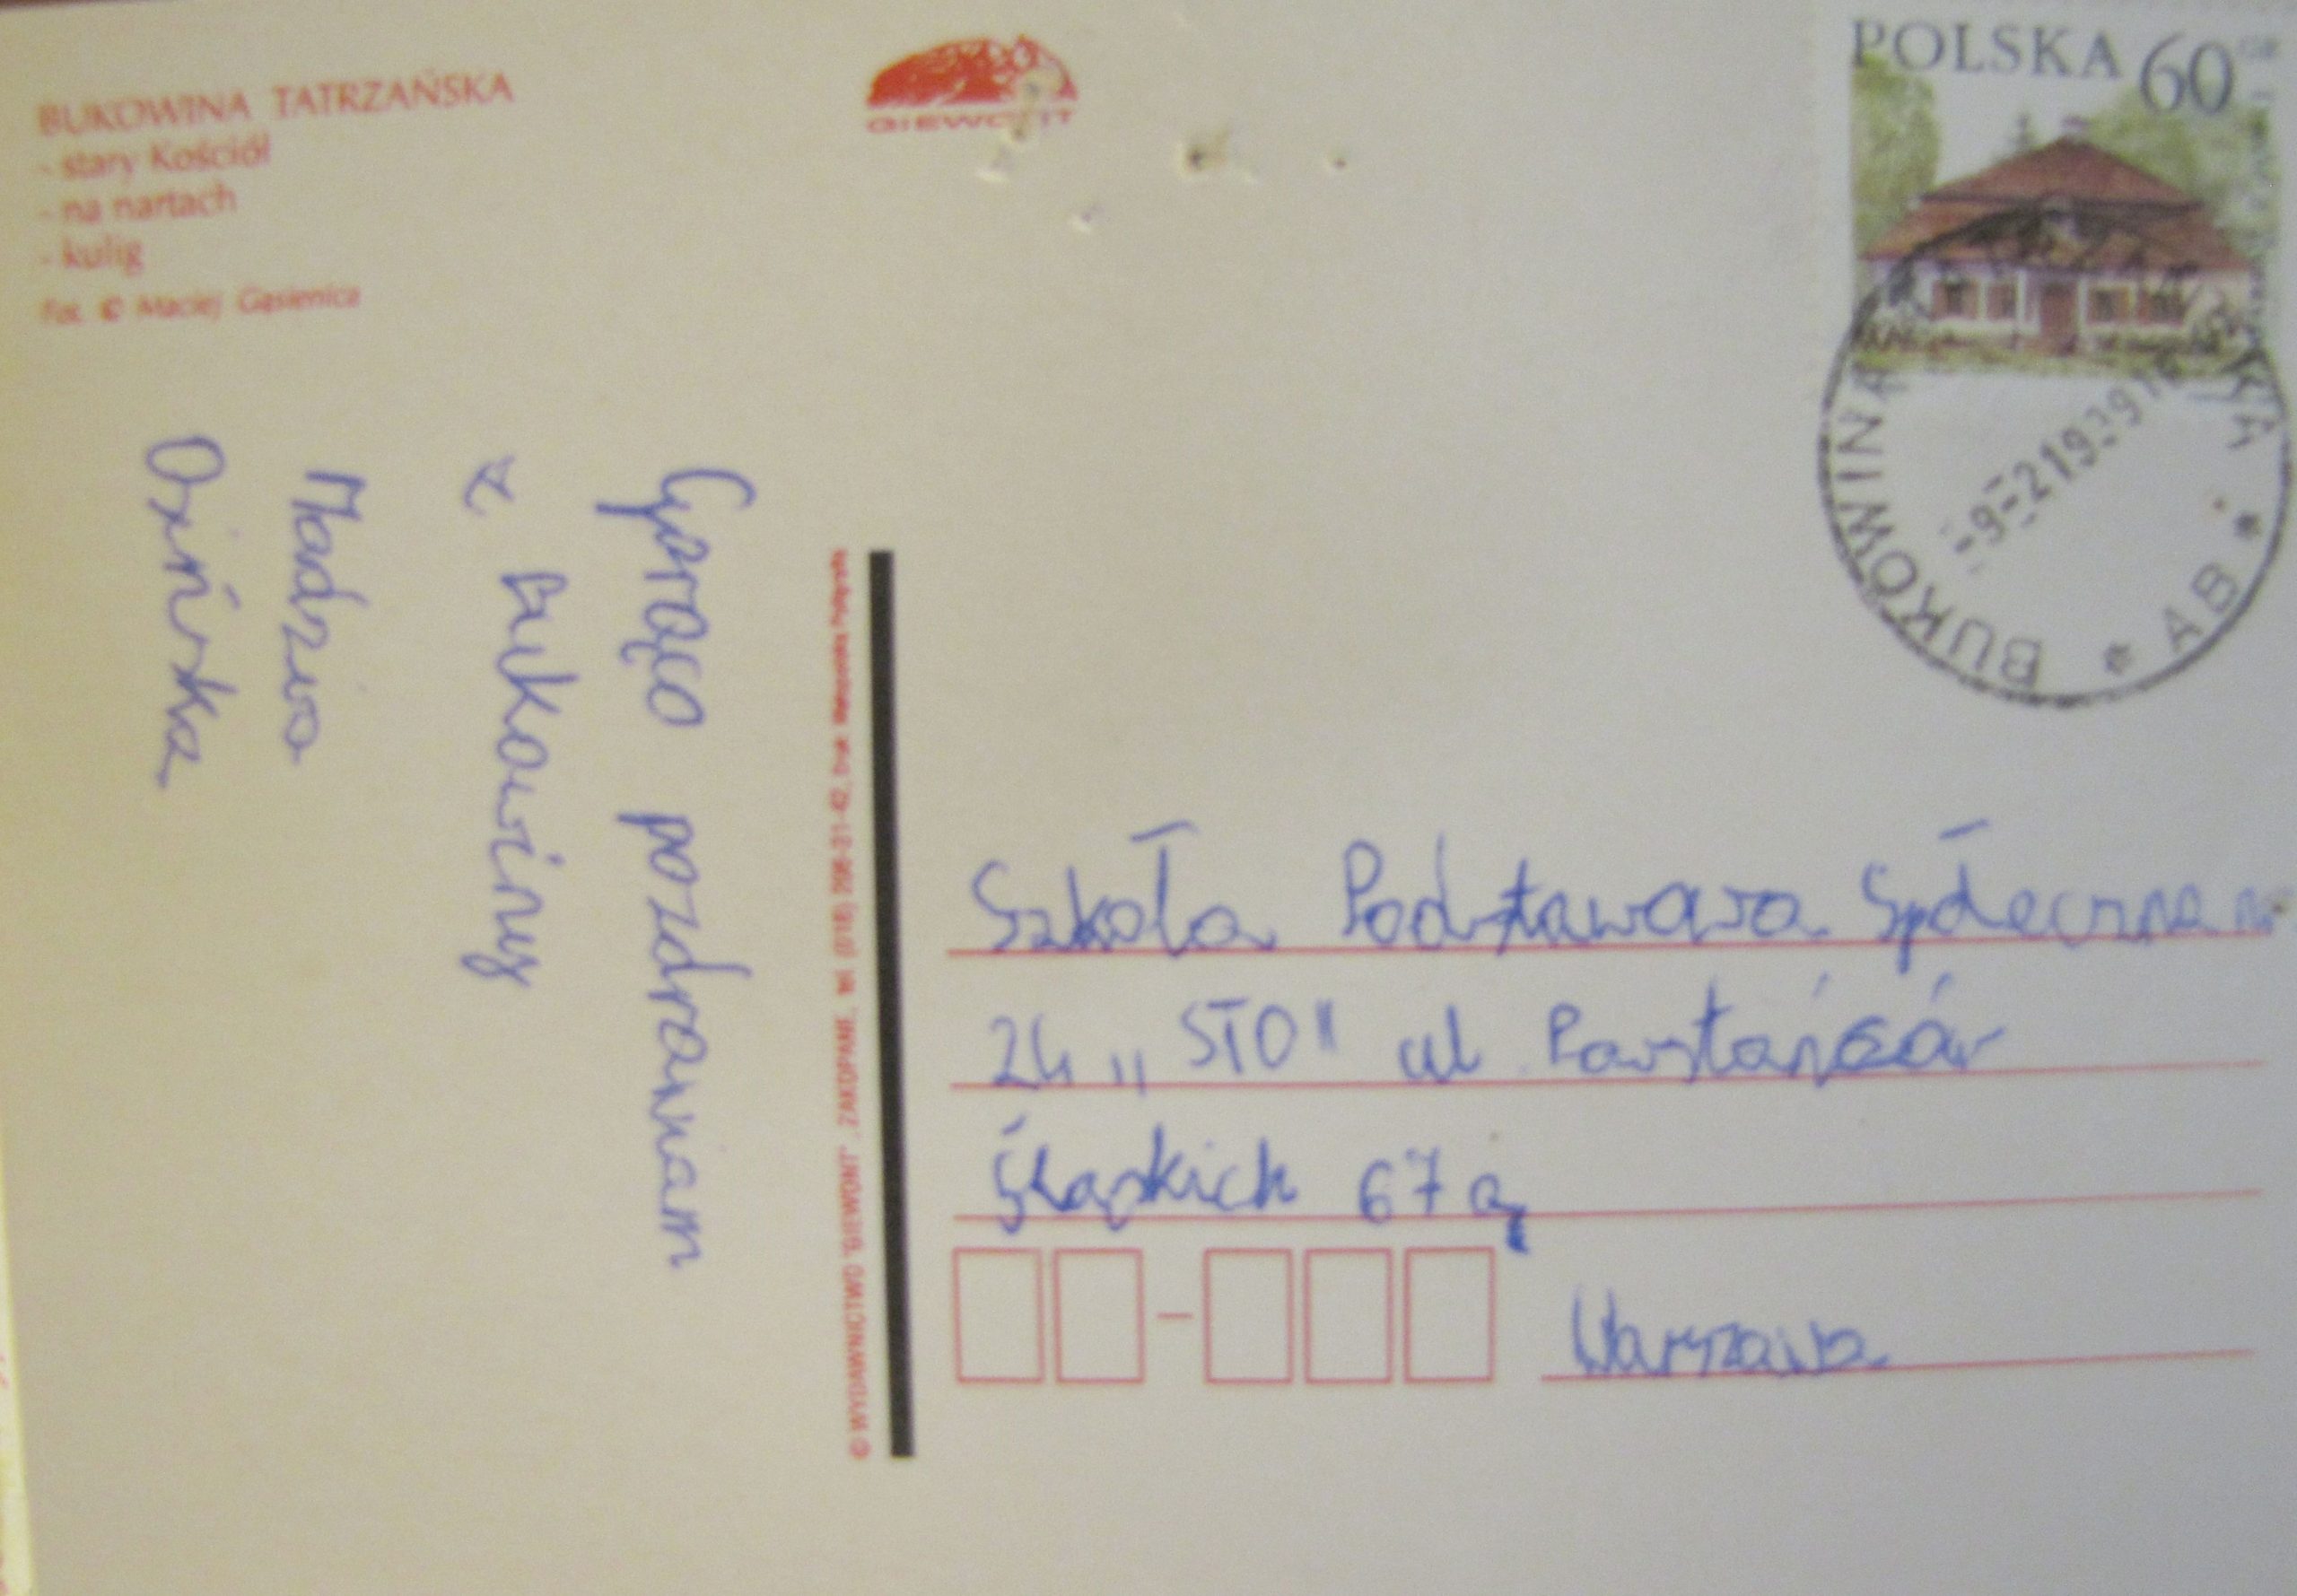 BUKOWINA TATRZAŃSKA
- stary Kościół
- na nartach
- kulig
Fot. © Maciej Gąsienica
GIEWONT
POLSKA 60 GR
BUKOWINA
* AB *
Gorąco pozdrawiam
z Bukowiny
Madzia
Ozińska
© WYDAWNICTWO "GIEWONT", ZAKOPANE, tel. (018) 206-31-42, Druk
Szkoła Podstawowa Społeczna nr
24 „STO" ul Powstańców
Śląskich 67 a,
Warszawa